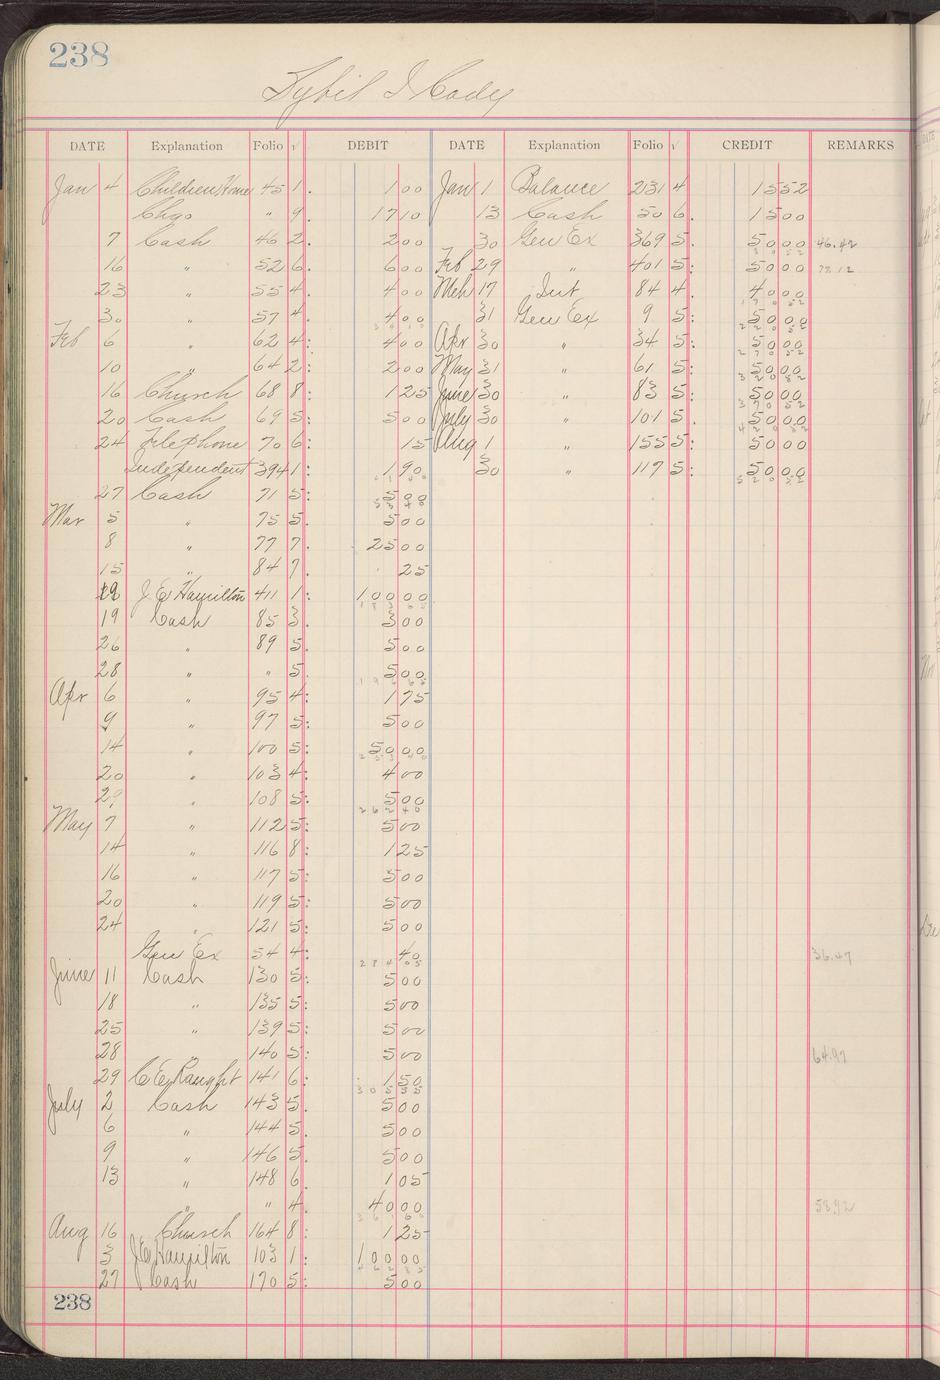 238
Sybil I Cady
DATE Explanation Folio √ DEBIT DATE Explanation Folio √ CREDIT REMARKS
Jan 4 Children Home 45 1. 1 00 Jan 1 Balance 231 4 15 52
Chgo " 9. 17 10 13 Cash 50 6. 15 00
7 Cash 46 2. 2 00 30 Gen Ex 369 5. 50 00 46.42
16 " 52 6. 6 00 Feb 29 " 401 5: 50 00
23 " 55 4. 4 00 Mch 17 Int 84 4. 40 00
30 " 57 4. 4 00 31 Gen Ex 9 5: 50 00
Feb 6 " 62 4: 4 00 Apr 30 " 34 5: 50 00
10 " 64 2: 2 00 May 31 " 61 5: 50 00
16 Church 68 8: 1 25 June 30 " 83 5: 50 00
20 Cash 69 5: 5 00 July 30 " 101 5. 50 00
24 Telephone 70 6: 15 Aug 1 " 155 5: 50 00
Independent 394 1: 1 90 30 " 117 5: 50 00
27 Cash 71 5: 5 00
Mar 5 " 75 5. 5 00
8 " 77 7. 25 00
15 " 84 7. 25
J E Hamilton 411 1: 100 00
19 Cash 85 3. 3 00
26 " 89 5. 5 00
28 " " 5. 5 00
Apr 6 " 95 4: 1 75
9 " 97 5: 5 00
14 " 100 5: 50 00
20 " 103 4: 4 00
29 " 108 5: 5 00
May 7 " 112 5: 5 00
14 " 116 8: 1 25
16 " 117 5: 5 00
20 " 119 5: 5 00
24 " 121 5: 5 00
Gen Ex 54 4: 40 36.47
June 11 Cash 130 5: 5 00
18 " 135 5: 5 00
25 " 139 5: 5 00
28 " 140 5: 5 00 64.97
29 C E Raught 141 6: 1 50
July 2 Cash 143 5. 5 00
6 " 144 5. 5 00
9 " 146 5. 5 00
13 " 148 6. 1 05
" " 4. 40 00 58.92
Aug 16 Church 164 8: 1 25
3 J E Hamilton 103 1: 100 00
27 Cash 170 5: 5 00
238